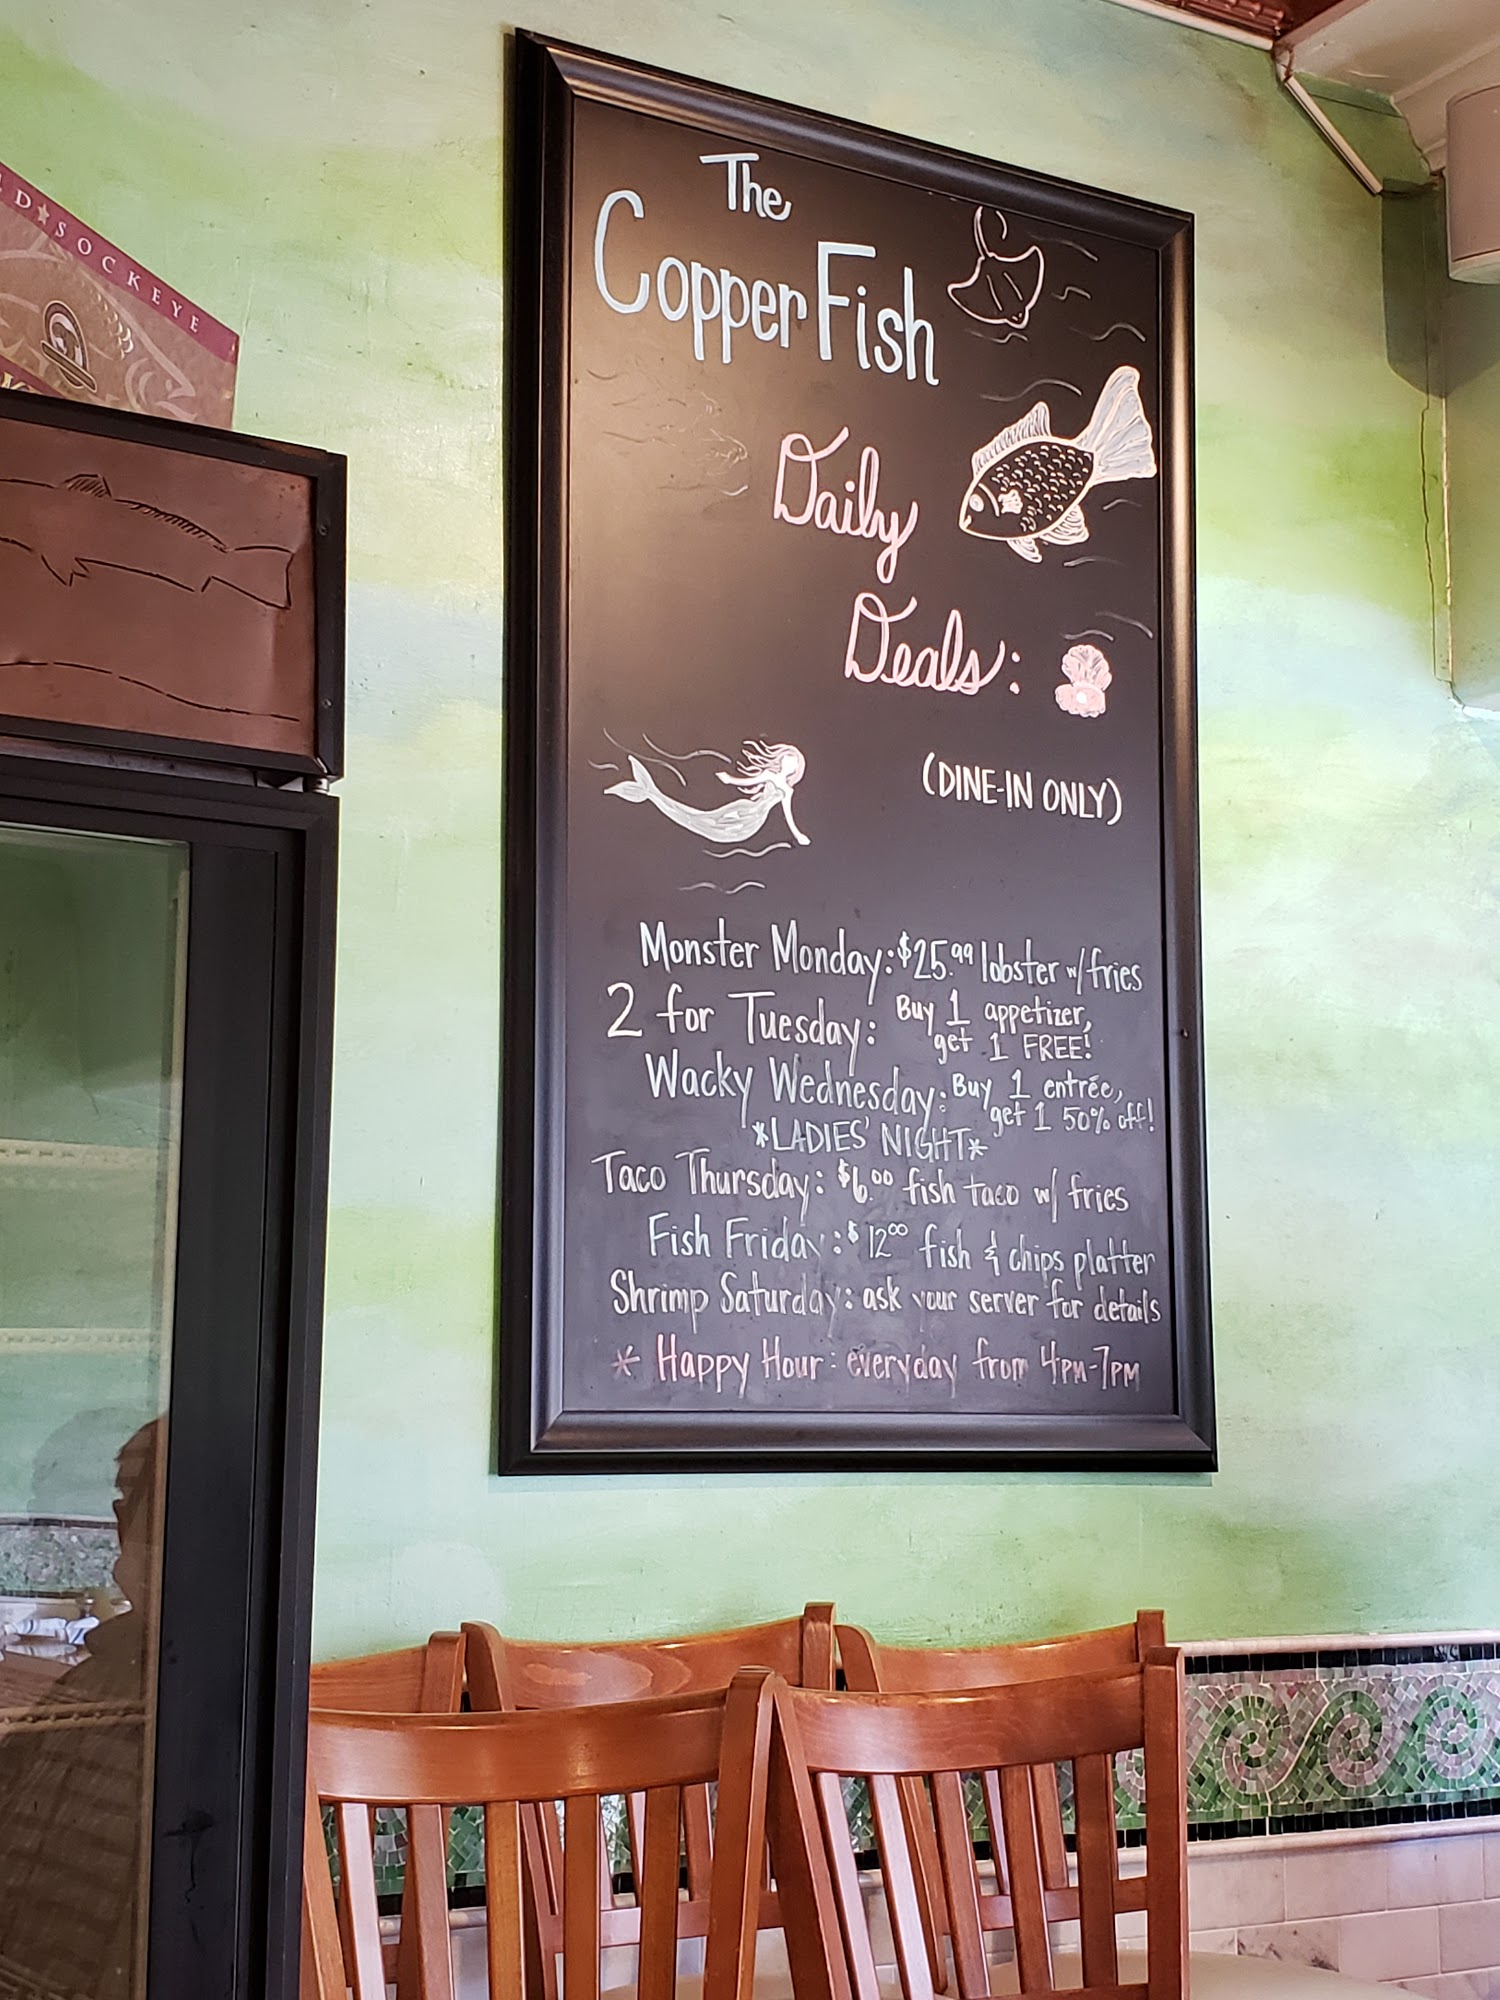 The
Copper Fish
Daily
Deals:
(DINE-IN ONLY)
Monster Monday: $25.99 lobster w/ fries
2 for Tuesday: Buy 1 appetizer,
get 1 FREE!
Wacky Wednesday: Buy 1 entrée,
get 1 50% off!
*LADIES' NIGHT*
Taco Thursday: $6.00 fish taco w/ fries
Fish Friday: $12.00 fish & chips platter
Shrimp Saturday: ask your server for details
* Happy Hour: everyday from 4PM-7PM
SOCKEYE